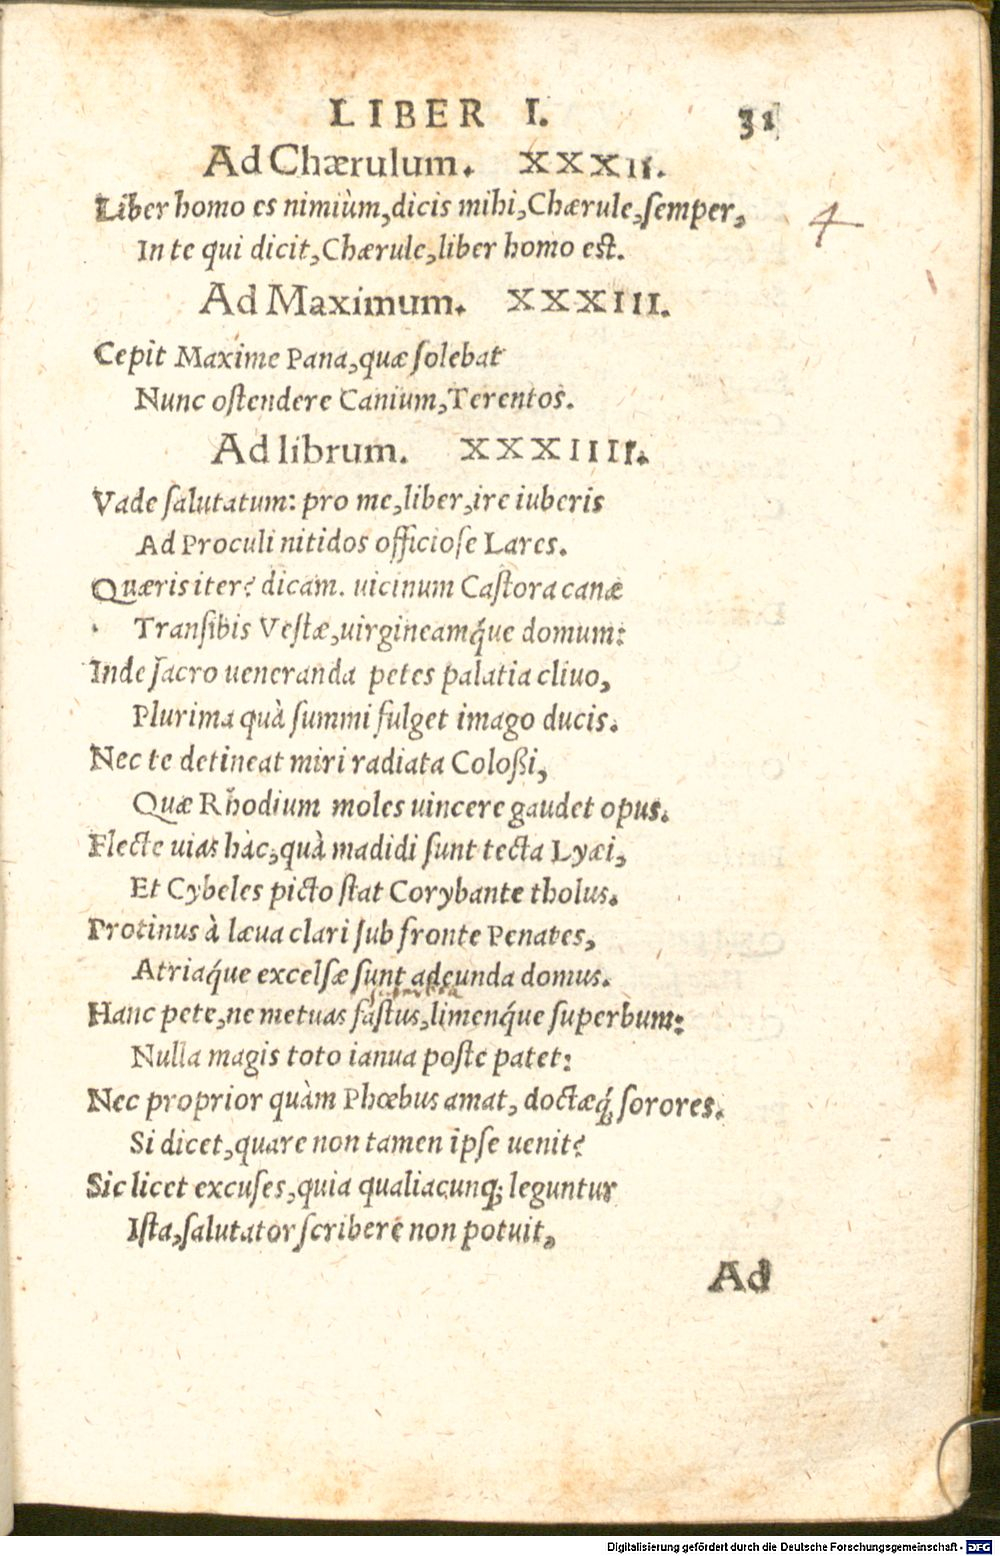 LIBER I. 31
Ad Chærulum. XXXII.
Liber homo es nimiùm, dicis mihi, Chærule, semper,
4
In te qui dicit, Chærule, liber homo est.
Ad Maximum. XXXIII.
Cepit Maxime Pana, quæ solebat
Nunc ostendere Canium, Terentos.
Ad librum. XXXIIII.
Vade salutatum: pro me, liber, ire iuberis
Ad Proculi nitidos officiose Lares.
Quæris iter? dicam. uicinum Castora canæ
Transibis Vestæ, uirgineamq́ue domum:
Inde sacro ueneranda petes palatia cliuo,
Plurima quà summi fulget imago ducis.
Nec te detineat miri radiata Coloßi,
Quæ Rhodium moles uincere gaudet opus.
Flecte uias hàc, quà madidi sunt tecta Lyæi,
Et Cybeles picto stat Corybante tholus.
Protinus à læua clari sub fronte Penates,
Atriaq́ue excelsæ sunt adeunda domus.
Hanc pete, ne metuas fastus, limenq́ue superbum:
Nulla magis toto ianua poste patet:
Nec proprior quàm Phœbus amat, doctæq́; sorores.
Si dicet, quare non tamen ipse uenit?
Sic licet excuses, quia qualiacunq; leguntur
Ista, salutator scribere non potuit,
Ad
Digitalisierung gefördert durch die Deutsche Forschungsgemeinschaft - DFG